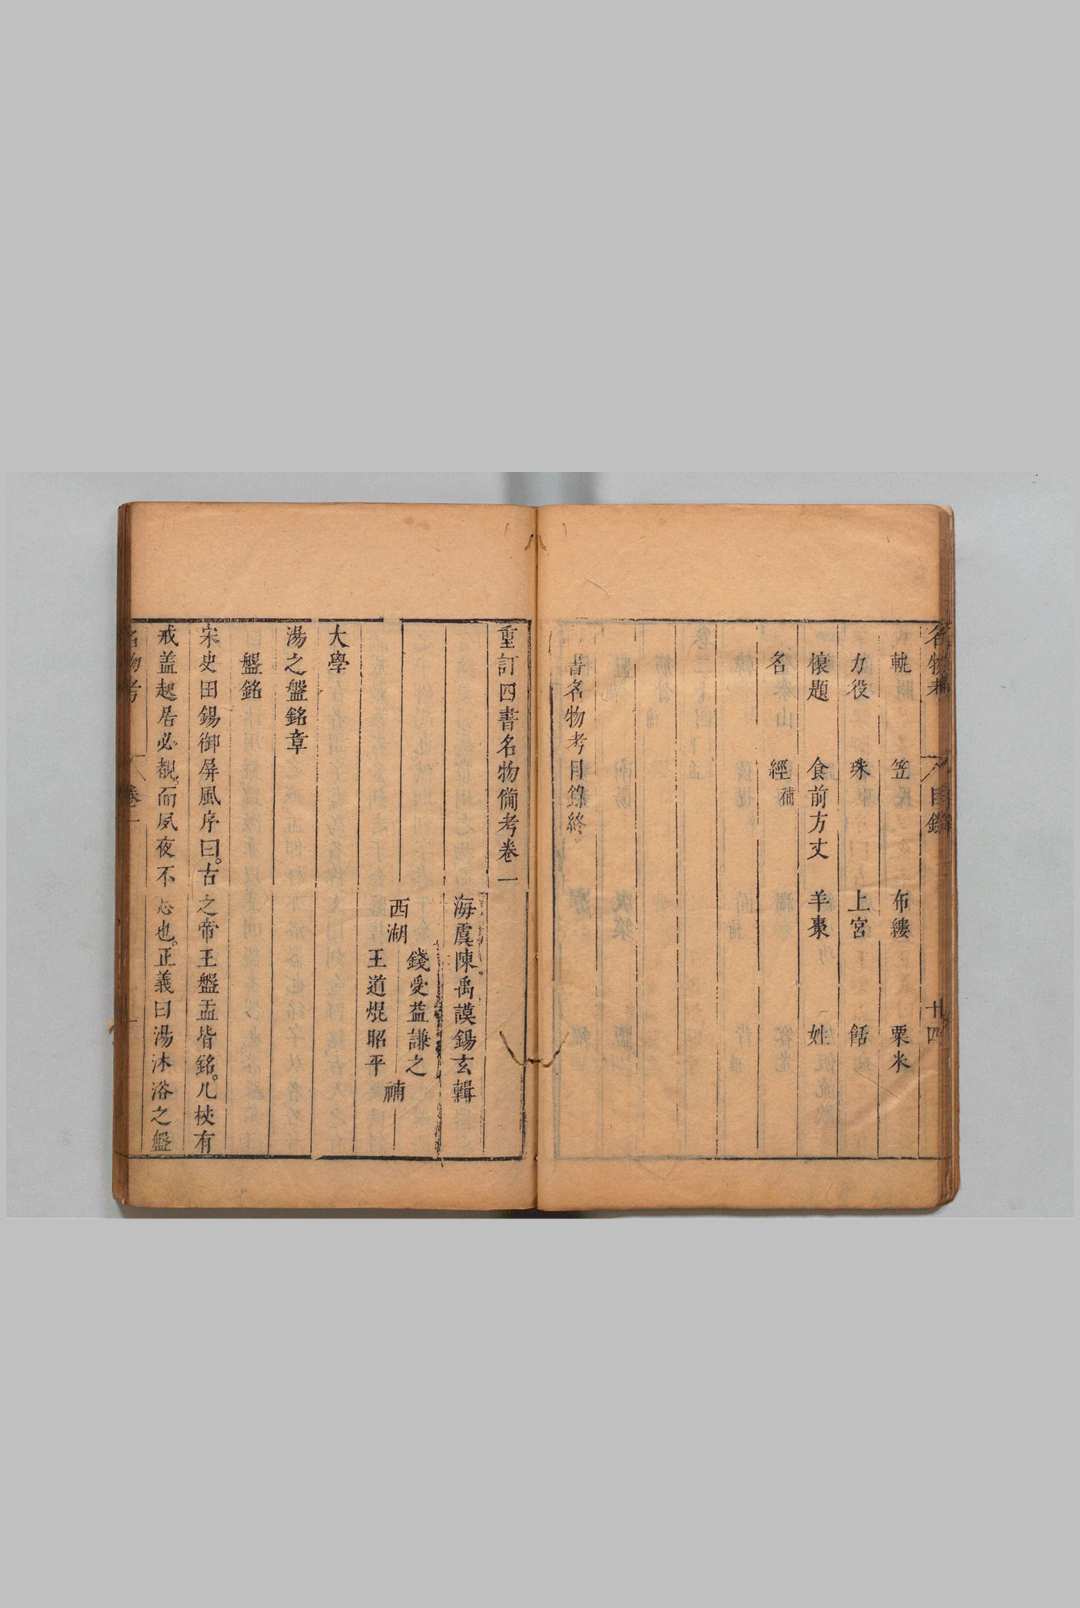 名物考 目錄 廿四
軌 笠 布縷 粟米
力役 珠 上宮 餂
榱題 食前方丈 羊棗 姓
名 經補
書名物考目錄終。
重訂四書名物備考卷一
海虞陳禹謨錫玄輯
西湖
錢受益謙之
王道焜昭平
補
大學
湯之盤銘章
盤銘
宋史田錫御屏風序曰。古之帝王盤盂皆銘。几杖有
戒蓋起居必覩。而夙夜不忘也。正義曰湯沐浴之盤
名物考 卷一 一